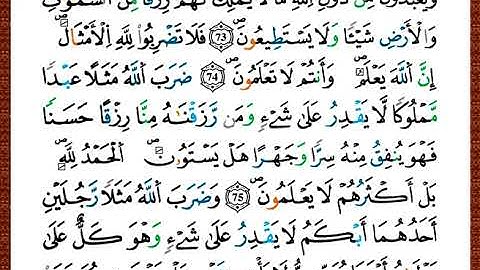 وَيَعْبُدُونَ مِنْ دُونِ اللَّهِ مَا لَا يَمْلِكُ لَهُمْ رِزْقًا مِنَ السَّمٰوٰتِ
وَالْأَرْضِ شَيْـًٔا وَلَا يَسْتَطِيعُونَ ۝73 فَلَا تَضْرِبُوا۟ لِلَّهِ الْأَمْثَالَ
إِنَّ اللَّهَ يَعْلَمُ وَأَنْتُمْ لَا تَعْلَمُونَ ۝74 ضَرَبَ اللَّهُ مَثَلًا عَبْدًا
مَّمْلُوكًا لَّا يَقْدِرُ عَلَىٰ شَىْءٍ وَمَن رَّزَقْنَٰهُ مِنَّا رِزْقًا حَسَنًا
فَهُوَ يُنفِقُ مِنْهُ سِرًّا وَجَهْرًا هَلْ يَسْتَوُونَ الْحَمْدُ لِلَّهِ
بَلْ أَكْثَرُهُمْ لَا يَعْلَمُونَ ۝75 وَضَرَبَ اللَّهُ مَثَلًا رَّجُلَيْنِ
أَحَدُهُمَا أَبْكَمُ لَا يَقْدِرُ عَلَىٰ شَىْءٍ وَهُوَ كَلٌّ عَلَىٰ